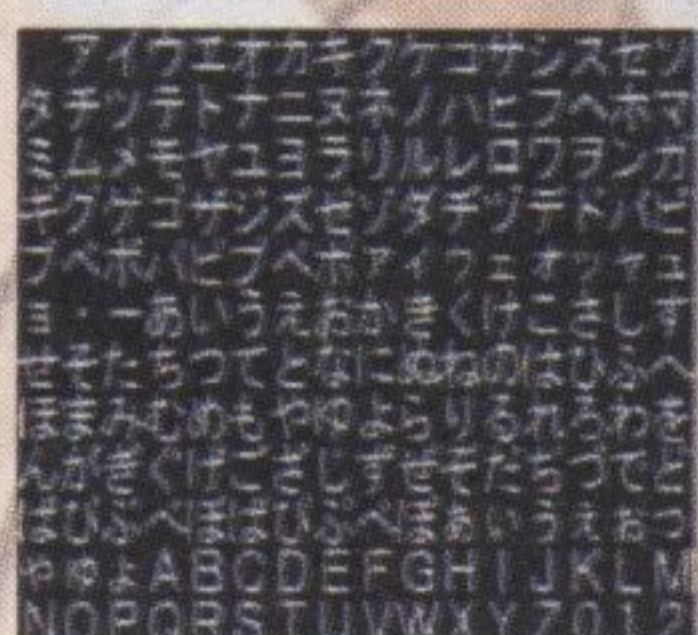 アイウエオカキクケコサシスセソ
タチツテトナニヌネノハヒフヘホマ
ミムメモヤユヨラリルレロワヲンガ
ギグゲゴザジズゼゾダヂヅデドバビ
ブベボパピプペポァィゥェォッャュ
ョ・ーあいうえおかきくけこさしす
せそたちつてとなにぬねのはひふへ
ほまみむめもやゆよらりるれろわを
んがぎぐげござじずぜぞだぢづでど
ばびぶべぼぱぴぷぺぽぁぃぅぇぉっ
ゃゅょABCDEFGHIJKLM
NOPQRSTUVWXYZ012